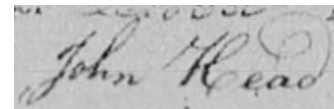 John Head